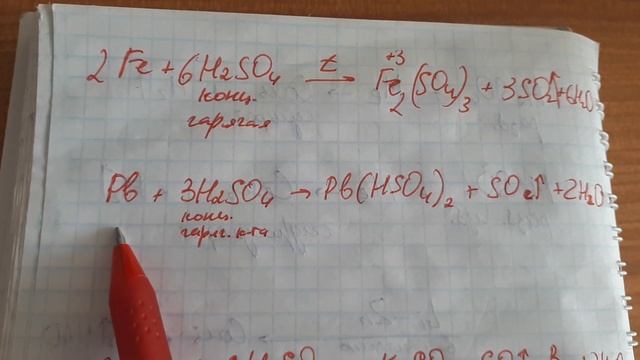 2Fe + 6H₂SO₄ t→ Fe₂⁺³(SO₄)₃ + 3SO₂↑ + 6H₂O
конц.
гарячая
Pb + 3H₂SO₄ → Pb(HSO₄)₂ + SO₂↑ + 2H₂O
конц.
гаряч. к-та